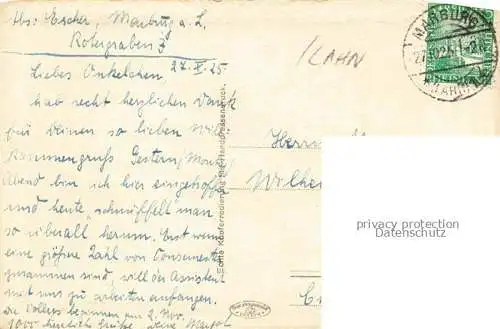 Abs: Escher, Marburg a. L.
Rotergraben 3
27.X.25
Liebes Onkelchen!
hab recht herzlichen Dank
für Deinen so lieben Will-
kommensgruß. Gestern/Montag
Abend bin ich hier eingetroffen
und heute "schnüffelt" man
so überall herum. Erst wenn
eine größere Zahl von
zusammen sind, will der Assistent
mit uns zu arbeiten anfangen.
Die Kollegs beginnen am 2. Nov.
1000 herzliche Grüße Deine
/LAHN
MARBURG
Echte Kupferradierung
Herrn
Wilhe
privacy protection
Datenschutz